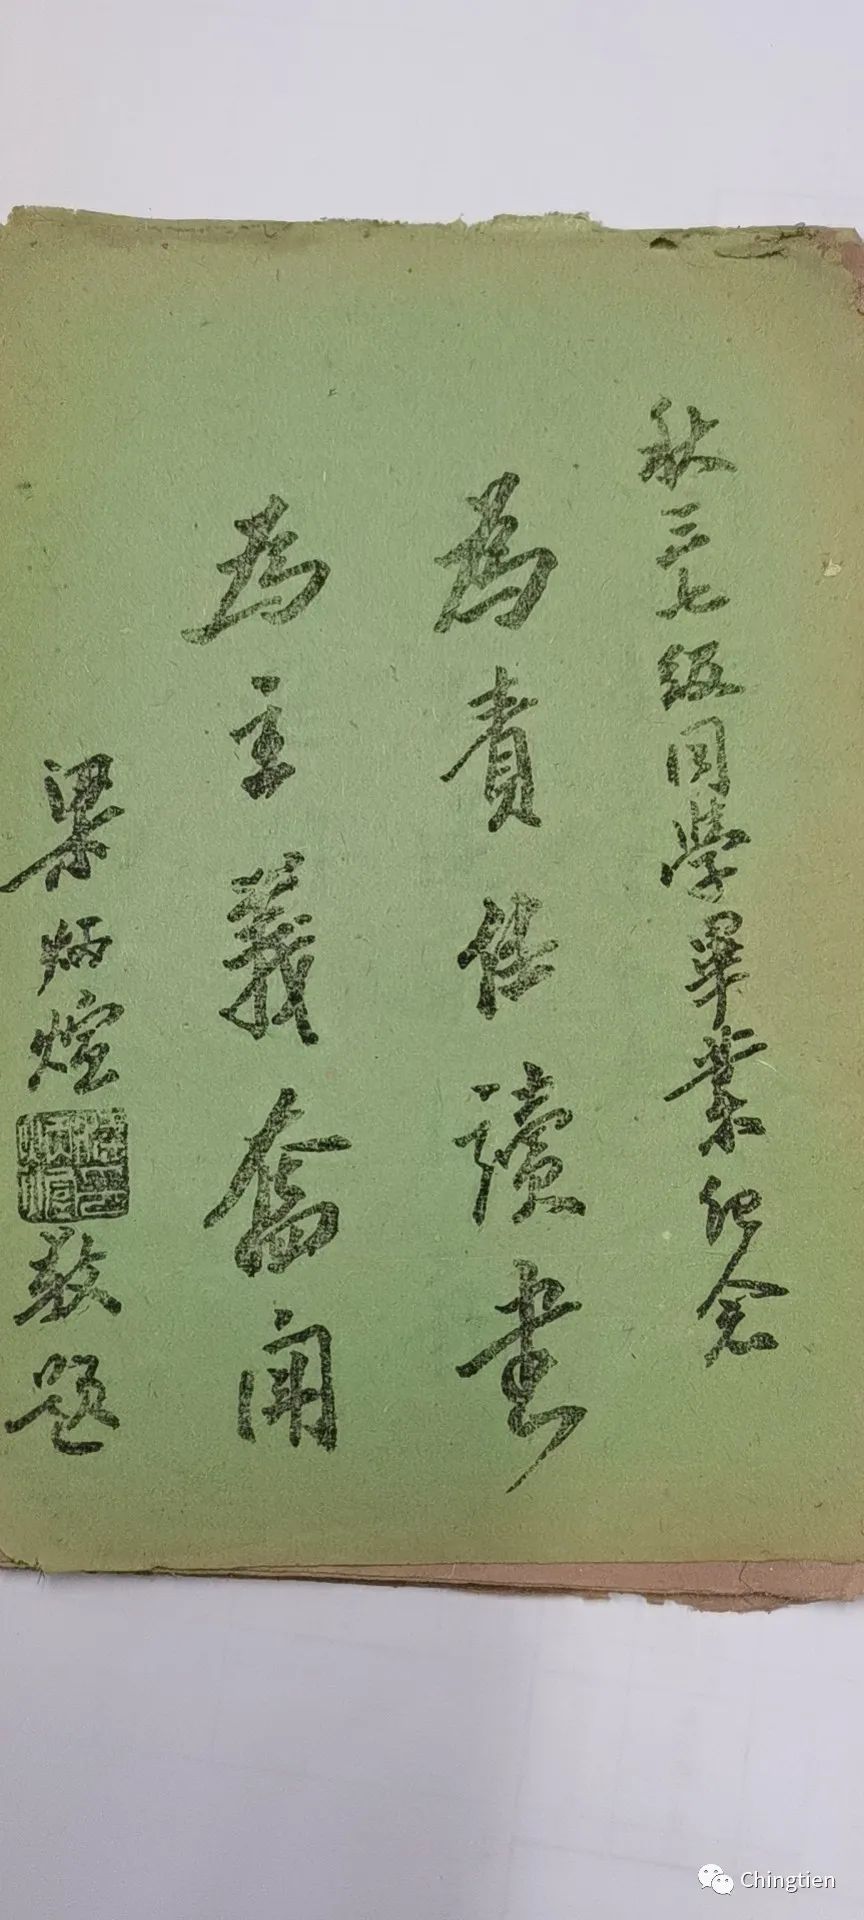 秋三七級同學畢業紀念
為責任讀書
為主義奮鬥
梁炳煊敬題
Chingtien